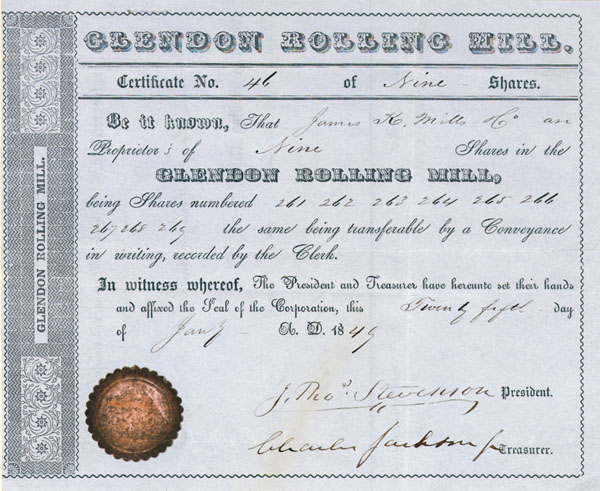 GLENDON ROLLING MILL.
Certificate No. 46 of Nine Shares.
Be it known, That James K. Mills & Co are
Proprietors of Nine Shares in the
GLENDON ROLLING MILL,
being Shares numbered 261 262 263 264 265 266
267 268 269 the same being transferable by a Conveyance
in writing, recorded by the Clerk.
In witness whereof, The President and Treasurer have hereunto set their hands
and affixed the Seal of the Corporation, this Twenty fifth day
of Jany A. D. 1849
J. Thos. Stevenson President.
Charles Jackson Jr Treasurer.
GLENDON ROLLING MILL.